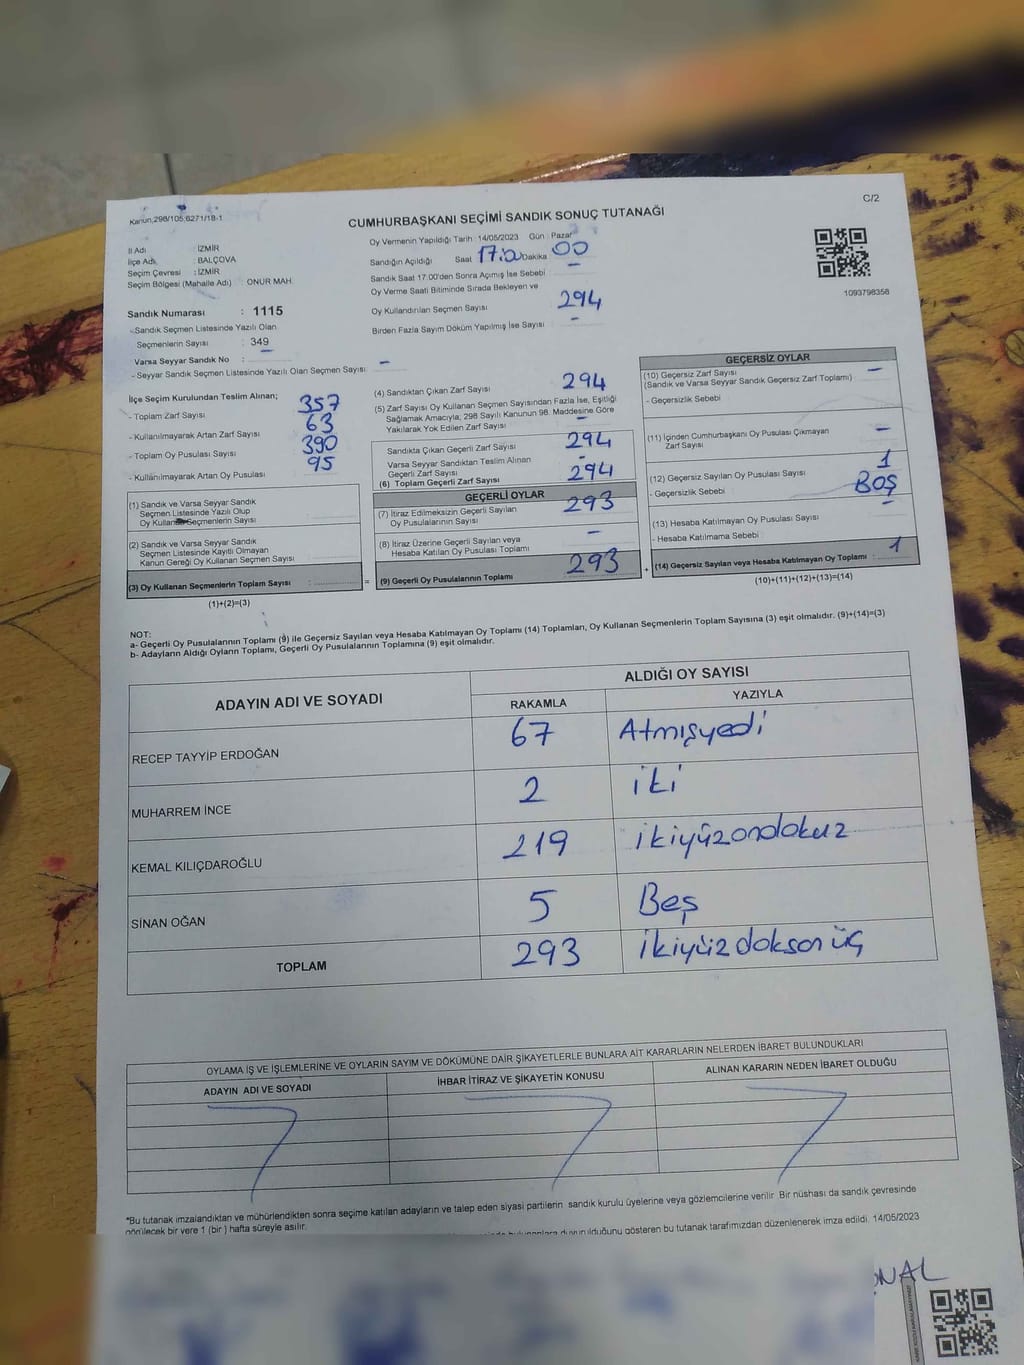 Kanun,298/105;6271/18-1
C/2
CUMHURBAŞKANI SEÇİMİ SANDIK SONUÇ TUTANAĞI
İl Adı : İZMİR
İlçe Adı : BALÇOVA
Seçim Çevresi : İZMİR
Seçim Bölgesi (Mahalle Adı) : ONUR MAH.
Oy Vermenin Yapıldığı Tarih :14/05/2023 Gün : Pazar
Sandığın Açıldığı Saat 17:00 Dakika 00
Sandık Saat 17.00'den Sonra Açılmış İse Sebebi –
Oy Verme Saati Bitiminde Sırada Bekleyen ve
Oy Kullandırılan Seçmen Sayısı 294
Birden Fazla Sayım Döküm Yapılmış İse Sayısı : –
1093798358
Sandık Numarası : 1115
- Sandık Seçmen Listesinde Yazılı Olan
Seçmenlerin Sayısı : 349
Varsa Seyyar Sandık No : –
- Seyyar Sandık Seçmen Listesinde Yazılı Olan Seçmen Sayısı: –
İlçe Seçim Kurulundan Teslim Alınan;
- Toplam Zarf Sayısı 357
- Kullanılmayarak Artan Zarf Sayısı 63
- Toplam Oy Pusulası Sayısı 390
- Kullanılmayarak Artan Oy Pusulası 95
(1) Sandık ve Varsa Seyyar Sandık
Seçmen Listesinde Yazılı Olup
Oy Kullanan Seçmenlerin Sayısı
(2) Sandık ve Varsa Seyyar Sandık
Seçmen Listesinde Kayıtlı Olmayan
Kanun Gereği Oy Kullanan Seçmen Sayısı :
(3) Oy Kullanan Seçmenlerin Toplam Sayısı :
(1)+(2)=(3)
=
(4) Sandıktan Çıkan Zarf Sayısı 294
(5) Zarf Sayısı Oy Kullanan Seçmen Sayısından Fazla İse, Eşitliği
Sağlamak Amacıyla; 298 Sayılı Kanunun 98. Maddesine Göre
Yakılarak Yok Edilen Zarf Sayısı –
Sandıkta Çıkan Geçerli Zarf Sayısı 294
Varsa Seyyar Sandıktan Teslim Alınan
Geçerli Zarf Sayısı –
(6) Toplam Geçerli Zarf Sayısı 294
GEÇERLİ OYLAR
(7) İtiraz Edilmeksizin Geçerli Sayılan
Oy Pusulalarının Sayısı 293
(8) İtiraz Üzerine Geçerli Sayılan veya
Hesaba Katılan Oy Pusulası Toplamı –
(9) Geçerli Oy Pusulalarının Toplamı 293
+
GEÇERSİZ OYLAR
(10) Geçersiz Zarf Sayısı –
(Sandık ve Varsa Seyyar Sandık Geçersiz Zarf Toplamı)
- Geçersizlik Sebebi
(11) İçinden Cumhurbaşkanı Oy Pusulası Çıkmayan
Zarf Sayısı –
(12) Geçersiz Sayılan Oy Pusulası Sayısı 1
- Geçersizlik Sebebi BOŞ
(13) Hesaba Katılmayan Oy Pusulası Sayısı –
- Hesaba Katılmama Sebebi :
(14) Geçersiz Sayılan veya Hesaba Katılmayan Oy Toplamı : 1
(10)+(11)+(12)+(13)=(14)
NOT:
a- Geçerli Oy Pusulalarının Toplamı (9) ile Geçersiz Sayılan veya Hesaba Katılmayan Oy Toplamı (14) Toplamları, Oy Kullanan Seçmenlerin Toplam Sayısına (3) eşit olmalıdır. (9)+(14)=(3)
b- Adayların Aldığı Oyların Toplamı, Geçerli Oy Pusulalarının Toplamına (9) eşit olmalıdır.
ADAYIN ADI VE SOYADI ALDIĞI OY SAYISI
RAKAMLA YAZIYLA
RECEP TAYYİP ERDOĞAN 67 Atmışyedi
MUHARREM İNCE 2 iki
KEMAL KILIÇDAROĞLU 219 ikiyüzondokuz
SİNAN OĞAN 5 Beş
TOPLAM 293 ikiyüz doksan üç
OYLAMA İŞ VE İŞLEMLERİNE VE OYLARIN SAYIM VE DÖKÜMÜNE DAİR ŞİKAYETLERLE BUNLARA AİT KARARLARIN NELERDEN İBARET BULUNDUKLARI
ADAYIN ADI VE SOYADI İHBAR İTİRAZ VE ŞİKAYETİN KONUSU ALINAN KARARIN NEDEN İBARET OLDUĞU
*Bu tutanak imzalandıktan ve mühürlendikten sonra seçime katılan adayların ve talep eden siyasi partilerin sandık kurulu üyelerine veya gözlemcilerine verilir. Bir nüshası da sandık çevresinde
görülecek bir yere 1 (bir) hafta süreyle asılır.
duyurulduğunu gösteren bu tutanak tarafımızdan düzenlenerek imza edildi. 14/05/2023